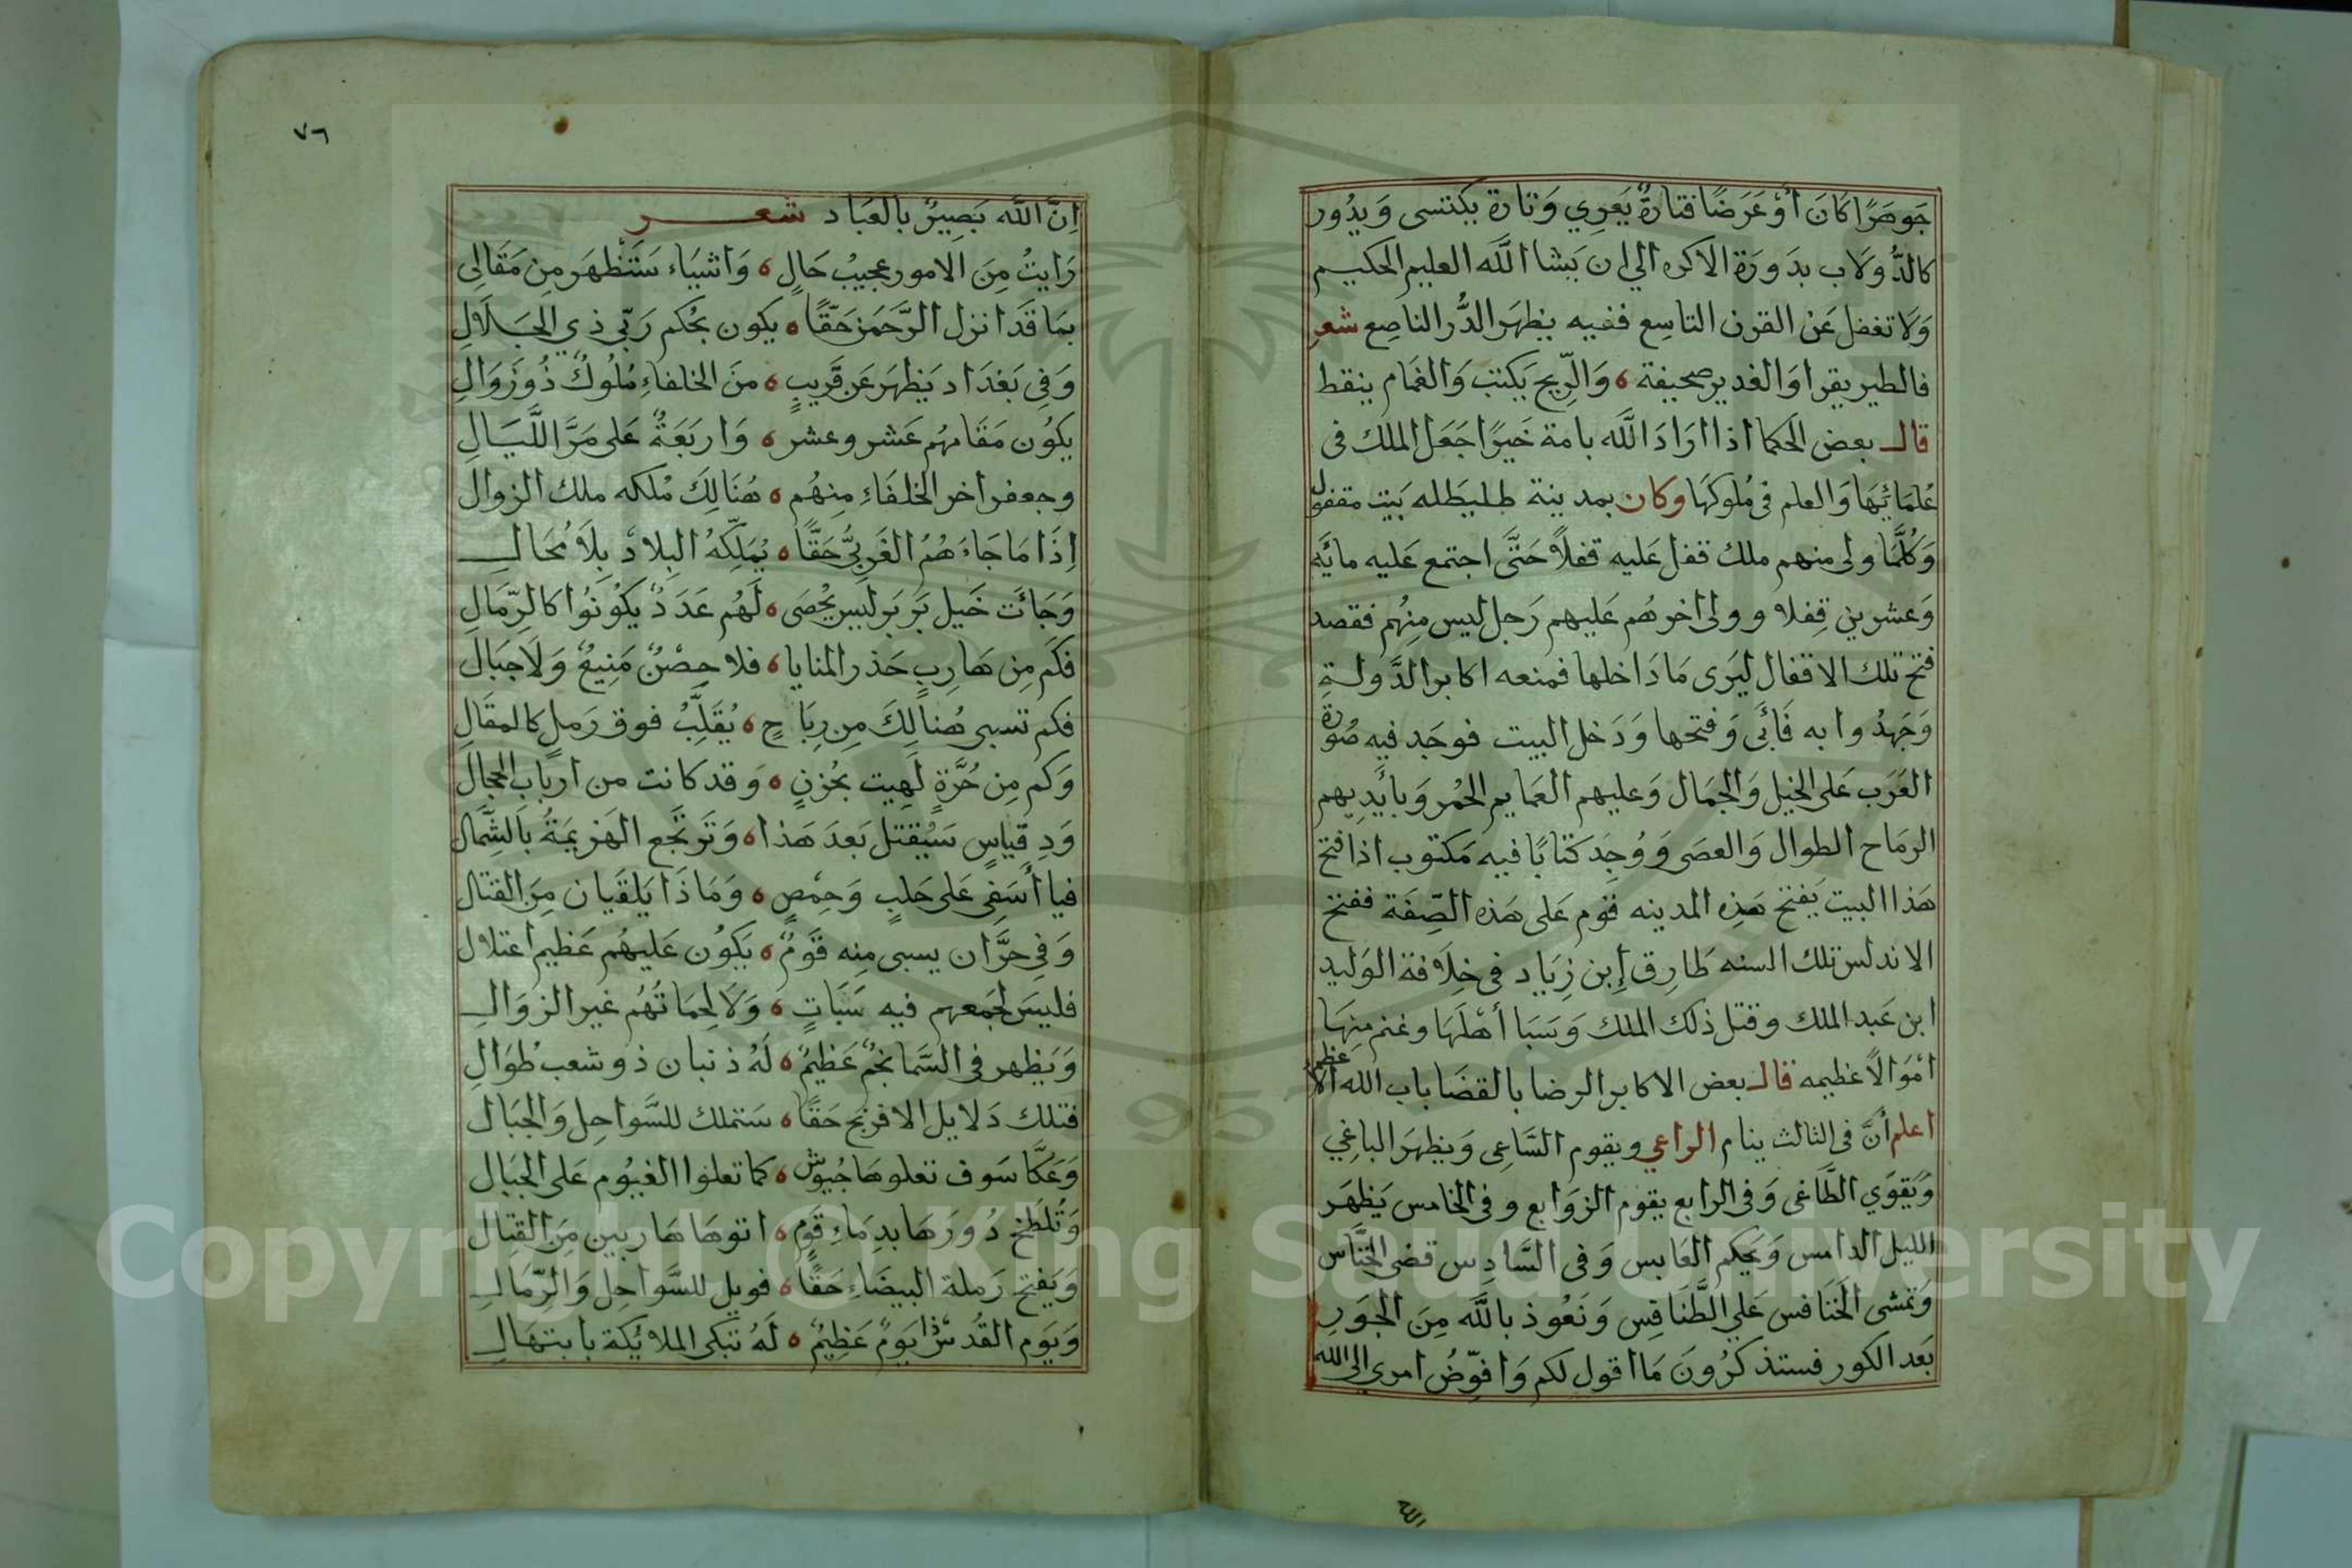 جَوهَرًا كَانَ أوْ عَرَضًا فتارةً يَعرِي وَتارة يكتسى وَيدُور
كالدُّولَاب بدَورَة الاكر الي ان يَشا اللَّه العليم الحكيم
وَلَا تغفل عَن القرن التاسِع ففيه يظهَر الدُّر الناصِع شعر
فالطير يقرا وَالغدير صحيفة ه وَالرِّيح يَكتب وَالغَمام ينقط
قال بعض الحكما اذا ارَادَ اللَّه بامة خَيرًا جَعَل الملك فى
عُلمَائِهَا وَالعلم فى مُلوكهَا وكان بمدينة طليطَله بَيت مقفول
وَكُلَّمَا ولى منهم ملك قفل عَليه قفلًا حَتَّى اجتمع عَليه مائَه
وَعشرين قِفلا وولى اخرهُم عَليهم رَجل ليس مِنهُم فقصد
فتح تلك الاقفال ليَرى مَا دَاخلها فمنعه اكابر الدَّولة
وَجَهدُوا به فَأبَى وَفتحها وَدَخل البيت فوجَد فيه صُورة
العَرَب عَلى الخيل وَالجمَال وَعليهم العَمايم الحُمر وَبأيَدِيهم
الرمَاح الطوال وَالعصَى وَوُجِدَ كتابًا فيه مَكتوب اذا فتح
هَذا البيت يَفتح هَذِه المدينه قوم عَلى هَذه الصِّفَة ففتح
الاندلس تلك السنه طَارِق إبن زِيَاد فى خِلَافة الوَليد
ابن عَبد الملك وقتل ذلك الملك وَسَبا أهْلَهَا وغنم مِنهَا
امْوَالًا عَظيمه قال بعض الاكابر الرضا بالقضَا باب الله الاعظم
اعلم أنَّ فى الثالث ينام الراعي ويقوم السَّاعِى وَيظهَر الباغِي
وَيَقوَي الطَّاغى وَفى الرابع يقوم الزوَابع وفى الخامس يَظهَر
الليل الدامس وَيحكم العَابس وَفى السَّادِس قضى الخنَّاس
وَتمشى الخَنَافس عَلي الطَّنَافِس وَنَعُوذ باللَّه مِنَ الجَورِ
بَعد الكور فستذكرُونَ مَا اقول لكم وَافوِّضُ امري الى الله
الله
٧٦
اِنَّ اللَّه بَصِيرٌ بالعبَاد شعر
رَايتُ مِنَ الامور عجيبُ حَالٍ ه وَاشيَاء سَتَظهَر مِن مَقَالِى
بمَا قَد انزل الرَّحمَن حَقًّا ه يكون بحُكم رَبّي ذي الجَلَالِ
وَفى بَغدَاد يَظهَر عَن قَريبٍ ه منَ الخلفاءِ مُلُوكٌ ذُو زَوَالِ
يَكوُن مَقَامهُم عَشر وعشر ه وَاربَعَةٌ عَلى مَرَّ اللَّيَالِ
وجعفر اخر الخلفَاءِ مِنهُم ه هُنَالِكَ مُلكه ملك الزوال
اِذَا مَا جَاءَهُمُ الغَربيُّ حَقًّا ه يُمَلِّكهُ البِلادَ بِلَا مُحَالِ
وَجَائت خَيل بَربَر ليس يُحصَى ه لَهُم عَدَدٌ يَكوُنوُا كالرِّمَالِ
فكَم مِن هَارِبٍ حَذر المنايا ه فلا حِصْنٌ مَنِيعٌ وَلَا جبَال
فكم تسبى هُنالِكَ مِن رِيَاحٍ ه يُقَلّبُ فوق رَملٍ كالمقَالِ
وَكم مِن حُرَّةٍ لَهِيت بحُزنٍ ه وَقد كانت من اربَاب الحجالَ
وَدِ قِياسٍ سَيُقتل بَعدَ هَذا ه وَتَرجَع الهَزيمَةُ بالشِّمَال
فيا أسَفى عَلى حَلبٍ وَحِمصٍ ه وَمَا ذَا يَلقَيان مِنَ القتال
وَفى حرَّان يسبى مِنه قَومٌ ه يَكوُن عَليهُم عَظيم اعتلال
فليسَ لجَمعهم فيه سَبَاتٍ ه وَلَا لِحمَاتُهُم غير الزوَالِ
وَيَظهر فى السَّما نجمٌ عَظيمٌ ه لَهُ ذنبان ذو شعب طُوَالِ
فتلك دَلايل الافرنج حَقًا ه سَتملك للسَّواحِل وَالجبَال
وَعَكَّا سَوف تعلوهَا جُيوُشٌ ه كما تعلوا الغيُوم عَلى الجبَال
وَتُلطَخ دُورَهَا بدِمَاءِ قَومٍ ه اتوهَا هَاربين مِنَ القِتال
وَيَفتح رَملة البيضَاءِ حَقًا ه فويل للسَّواحِل وَالرِّمَالِ
وَيَوم القُدسِ يَومٌ عَظِيمٌ ه لَهُ تبكى الملائكة بابتهَالِ
Copyright © King Saud University
1957